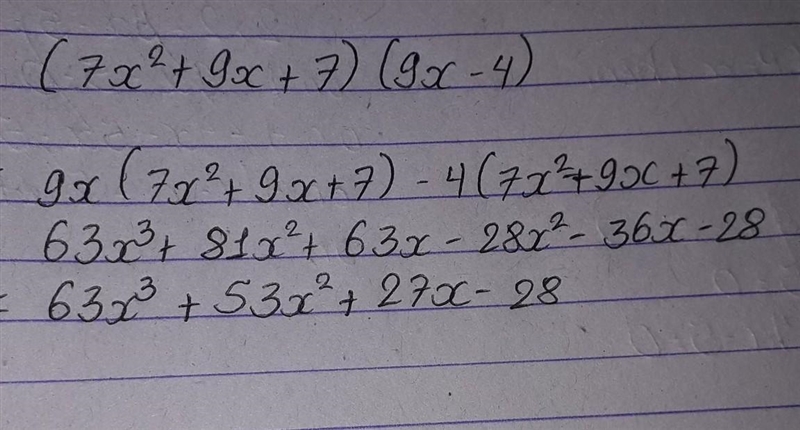 (7x² + 9x + 7) (9x - 4)
9x (7x² + 9x + 7) - 4 (7x² + 9x + 7)
63x³ + 81x² + 63x - 28x² - 36x - 28
= 63x³ + 53x² + 27x - 28